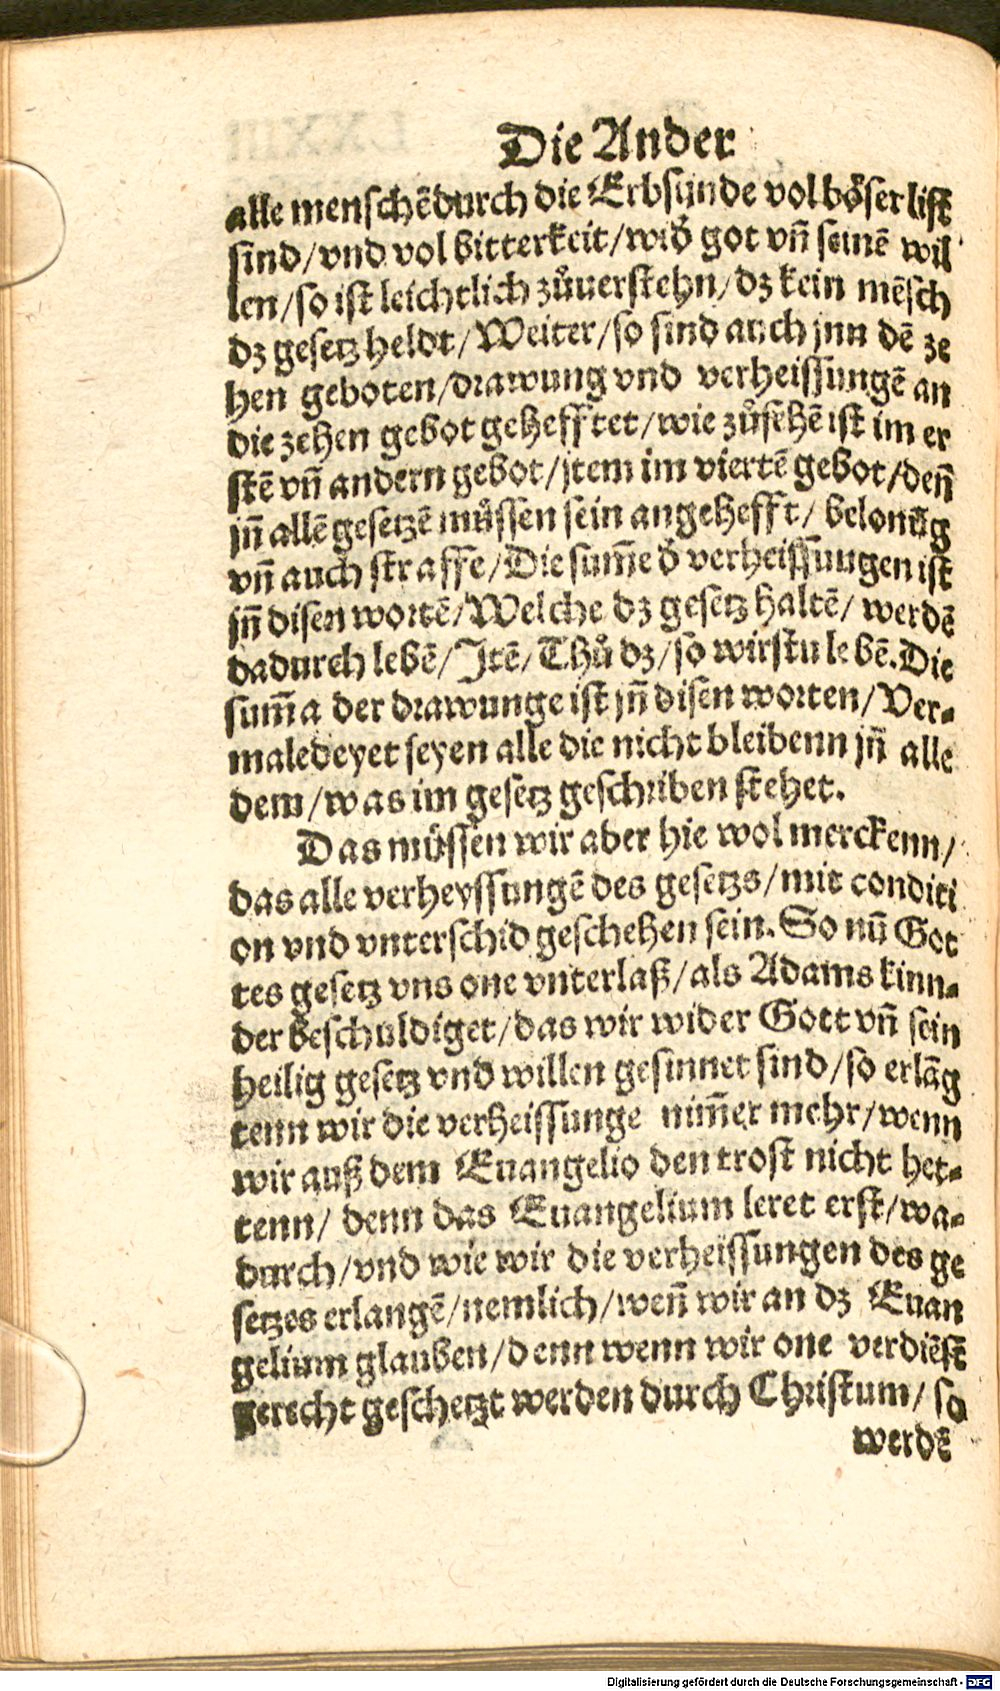 Die Ander
alle menschẽ durch die Erbsünde vol böser list
sind/ vnd vol bitterkeit/ wið got vñ seinẽ wil
len/ so ist leichtlich zůuerstehn/ dz kein mẽsch
dz gesetz heldt/ Weiter/ so sind auch jnn dẽ ze
hen geboten/ drawung vnd verheissungẽ an
die zehen gebot gehefftet/ wie zůsehẽ ist im er
stẽ vñ andern gebot/ jtem im viertẽ gebot/ deñ
jñ allẽ gesetzẽ můssen sein angehefft/ belonũg
vñ auch straffe/ Die sum̃e ð verheissuugen ist
jñ disen wortẽ/ Welche dz gesetz haltẽ/ werdẽ
dadurch lebẽ/ Jtẽ/ Thů dz/ so wirstu lebẽ. Die
sum̃a der drawunge ist jñ disen worten/ Ver-
maledeyet seyen alle die nicht bleibenn jñ alle
dem/ was im gesetz geschriben stehet.
Das müssen wir aber hie wol merckenn/
das alle verheyssungẽ des gesetzs/ mit conditi
on vnd vnterschid geschehen sein. So nũ Got
tes gesetz vns one vnterlaß/ als Adams kinn-
der beschuldiget/ das wir wider Gott vñ sein
heilig gesetz vnd willen gesinnet sind/ so erlãg
tenn wir die verheissunge nim̃er mehr/ wenn
wir auß dem Euangelio den trost nicht het-
tenn/ denn das Euangelium leret erst/ wa-
durch/ vnd wie wir die verheissungen des ge
setzes erlangẽ/ nemlich/ weñ wir an dz Euan
gelium glauben/ denn wenn wir one verdiẽst
gerecht geschetzt werden durch Christum/ so
werdẽ
Digitalisierung gefördert durch die Deutsche Forschungsgemeinschaft - DFG